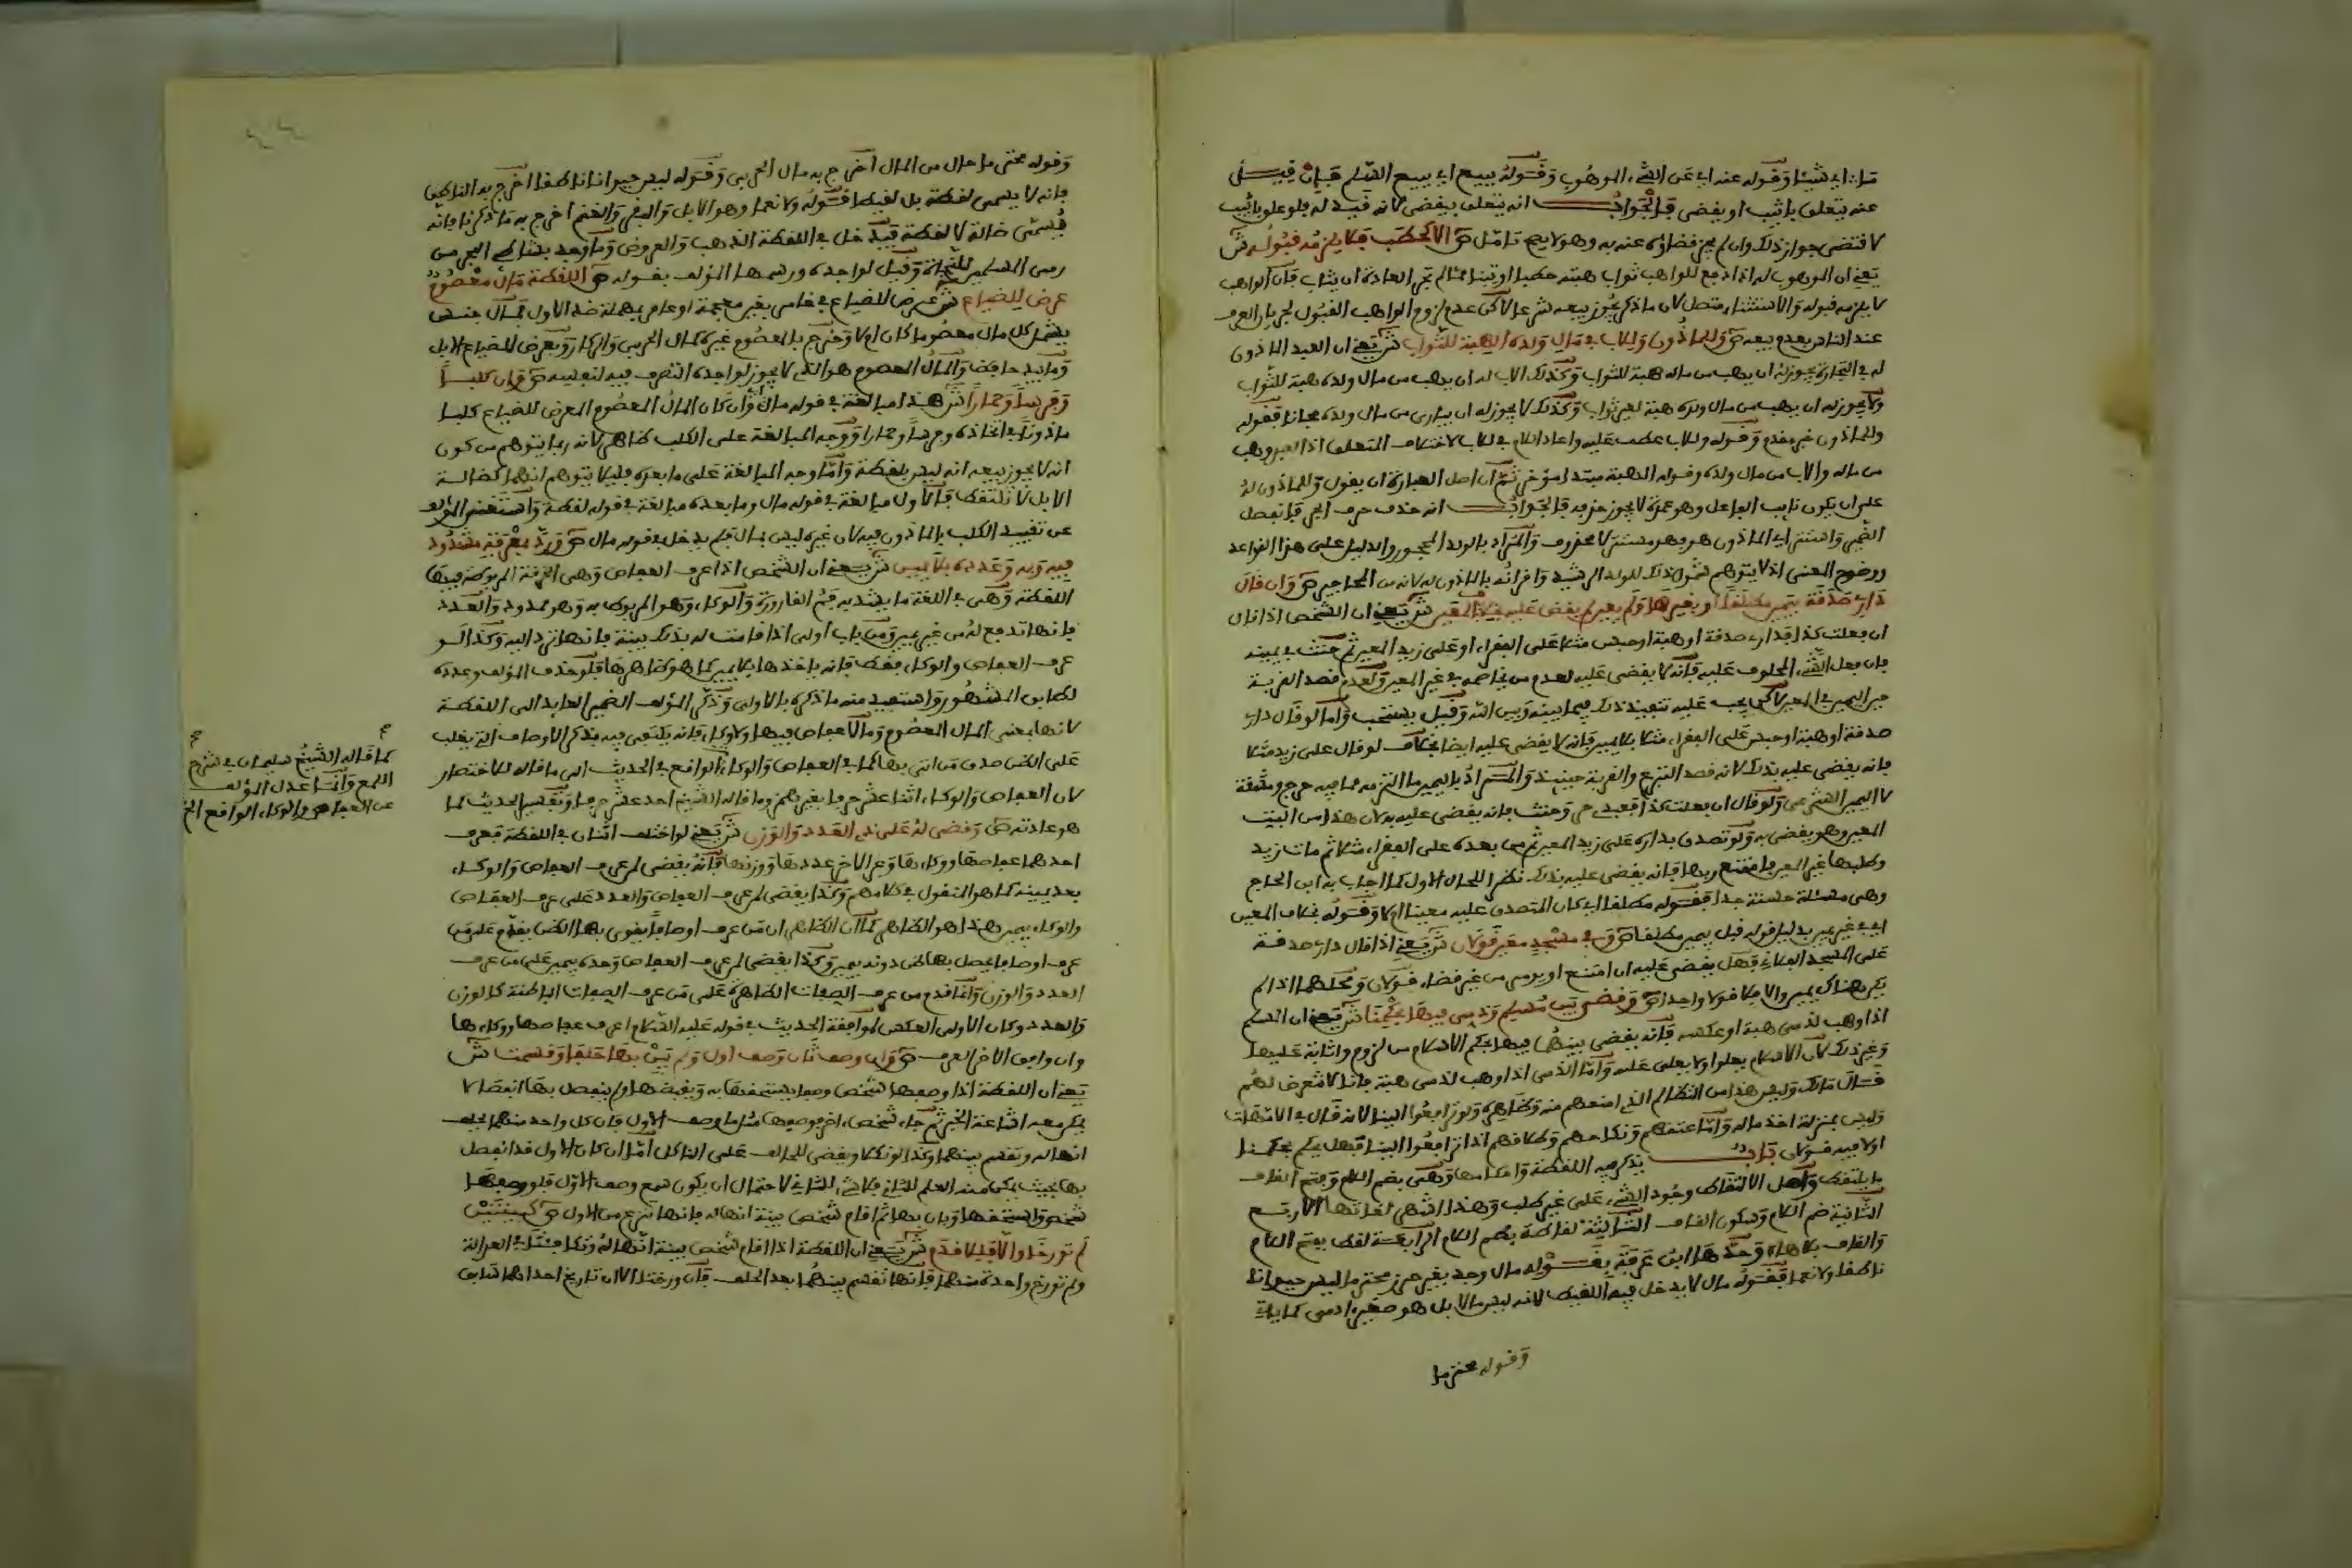 عنه يتعلق باثيب او يقضى فالجواب انه يتعلق بيقضى لانه قيد له فلو علق باثيب
لا يلزمه قبوله والاستثناء متصل لان ما ذكر يجوز بيعه شرعا لاكن عدم لزوم الواهب القبول لجريان العرف
عند الناس بعدم بيعه ص وللماذون وللاب في مال ولده الهبة للثواب ش يعني ان العبد الماذون
له في التجارة يجوز له ان يهب من ماله هبة للثواب وكذلك الاب له ان يهب من مال ولده هبة للثواب
ولا يجوز له ان يهب من مال ولده هبة لغير ثواب وكذلك لا يجوز له ان يبري من مال ولده مجانا فقوله
وللماذون خبر مقدم وقوله وللاب عطف عليه واعاد اللام في للاب لاختلاف المتعلق اذ العبد وهب
من ماله والاب من مال ولده وقوله الهبة مبتدا مؤخر ثم ان اصل العبارة ان يقول وللماذون له
على ان يكون نايب الفاعل وهو عمدة لا يجوز حذفه فالجواب انه حذف حرف الجر فانفصل
الضمير واستتر في الماذون هو فهو مستتر لا محذوف والمراد بالولد المحجور والدليل على هذا القواعد
ووضوح المعنى اذ لا يتوهم شمول ذلك للولد الرشيد وقرانه بالماذون له لانه من المحاجير ص وان قال
داري صدقة بيمين مطلقا او بغيرها ولم يعين لم يقض عليه بخلاف المعين ش يعني ان الشخص اذا قال
ان فعلت كذا فداري صدقة او هبة او حبس مثلا على الفقراء او على زيد المعين ثم حنث في يمينه
بان فعل الشيء المحلوف عليه فانه لا يقضى عليه لعدم من يخاصمه في غير المعين ولعدم قصد القربة
حين اليمين في المعين لاكن يجب عليه تنفيذ ذلك فيما بينه وبين الله وقيل يستحب واما لو قال داري
صدقة او هبة او حبس على الفقراء مثلا بلا يمين فانه لا يقضى عليه ايضا بخلاف لو قال على زيد مثلا
فانه يقضى عليه بذلك لانه قصد التبرع والقربة حينيذ والمراد باليمين ما التزمه مما فيه حرج ومشقة
لا اليمين الشرعي ولو قال ان فعلت كذا فعبدي حر وحنث فانه يقضى عليه به لان هذا من البت
المعين وهو يقضى به ولو تصدق بداره على زيد المعين ثم من بعده على الفقراء مثلا ثم مات زيد
وطلبها غير المعين فامتنع ربها فانه يقضى عليه بذلك نظرا للحال الاول كما اجاب به ابن الحاج
وهي مسئلة حسنة جدا فقوله مطلقا اي كان المتصدق عليه معينا ام لا وقوله بخلاف المعين
اي في غير يمين بدليل قوله قبل بيمين مطلقا ص وفي مسجد معين قولان ش يعني اذا قال داري صدقة
على المسجد الفلاني فهل يقضى عليه ان امتنع او يومر من غير قضاء قولان ومحلهما اذا لم
يكن هناك يمين والا فلا قولا واحدا ص وقضي بين مسلم وذمي فيها بحكمنا ش يعني ان المسلم
اذا وهب لذمي هبة او عكسه فانه يقضى بينهما فيها بحكم الاسلام من لزوم واثابة عليها
وغير ذلك لان الاسلام يعلو ولا يعلى عليه واما الذمي اذا وهب لذمي هبة فانا لا نتعرض لهم
قال مالك وليس هذا من التظالم الذي امنعهم منه وظاهره ولو ترافعوا الينا لانه قال في الامهات
وليس بمنزلة اخذ ماله واما عتقهم ونكاحهم وطلاقهم اذا ترافعوا الينا فهل يحكم بحكمنا
اولا فيه قولان باب يذكر فيه اللقطة واحكامها وهي بضم اللام وفتح القاف
ما يلتقط واصل الالتقاط وجود الشيء على غير طلب وهذا اشهر لغاتها الاربع
الثانية ضم اللام وسكون القاف الثالثة لقاطة بضم اللام الرابعة لقط بفتح اللام
والقاف بلا هاء وحدها ابن عرفة بقوله مال وجد بغير حرز محترما ليس حيوانا
ناطقا ولا نعما فقوله مال لا يدخل فيه اللقيط لانه ليس مالا بل هو صغير ادمي كما ياتي
وقوله محترما
وقوله محترما حال من المال اخرج به مال الحربي وقوله ليس حيوانا ناطقا اخرج به الناطق
فانه لا يسمى لقطة بل لقيطا قوله ولا نعما وهو الابل والبقر والغنم اخرج به ما ذكرنا فانه
يسمى ضالة لا لقطة فيدخل في اللقطة الذهب والعروض وما وجد بشاطئ البحر من
رمي المسلمين للنجاة وقيل لواجده ورسمها المؤلف بقوله ص اللقطة مال معصوم
عرض للضياع ش عرض للضياع في غامر بغين معجمة او عامر بمهملة ضد الاول فمال جنس
يشمل كل مال معصوما كان ام لا وخرج بالمعصوم غيره كمال الحربي والركاز وبعرض للضياع الابل
وما بيد حافظ والمال المعصوم هو الذي لا يجوز لواجده التصرف فيه لنفسه ص وان كلبا
وفرسا وحمارا ش هذا مبالغة في قوله مال اي وان كان المال المعصوم المعرض للضياع كلبا
ماذونا في اتخاذه وفرسا وحمارا ووجه المبالغة على الكلب ظاهر لانه ربما يتوهم من كون
انه لا يجوز بيعه انه ليس بلقطة واما وجه المبالغة على ما بعده فليلا يتوهم انهما كضالة
الابل لا تلتقط فالاول مبالغة في قوله مال وما بعده مبالغة في قوله لقطة واستغنى المؤلف
عن تقييد الكلب بالماذون فيه لان غيره ليس بمال فلم يدخل في قوله مال ص ورد بمعرفة مشدود
فيه وبه وعدده بلا يمين ش يعني ان الشخص اذا عرف العفاص وهي الخرقة المربوطة فيها
اللقطة وهي في اللغة ما يشد به فم القارورة والوكاء وهو المربوط به وهو ممدود والعدد
فانها تدفع له من غير يمين ومن باب اولى اذا قامت له بذلك بينة فانها ترد اليه وكذا لو
عرف العفاص والوكاء فقط فانه ياخذها بلا يمين كما هو ظاهرها فلو حذف المؤلف وعدده
لطابق المشهور واستفيد منه ما ذكره بالاولى وذكر المؤلف الضمير العايد الى اللقطة
لانها بمعنى المال المعصوم وما لا عفاص فيها ولا وكاء فانه يكتفى فيه بذكر الاوصاف التي يغلب
على الظن صدق من اتى بها كما في العفاص والوكاء الواقع في الحديث الى ما قاله للاختصار
كما قاله الشيخ سليمان في شرح
اللمع وانما عدل المؤلف
عن العفاص والوكاء الواقع الخ
لان العفاص والوكاء اثنا عشر حرفا بغيرهم وما قاله الشيخ احد عشر حرفا وتفسير الحديث كما
هو عادته ص وقضي له على ذي العدد والوزن ش يعني لو اختلف اثنان في اللقطة فعرف
احدهما عفاصها ووكاءها وعرف الاخر عددها ووزنها فانه يقضى لمن عرف العفاص والوكاء
بعد يمينه كما هو المنقول في كلامهم وكذا يقضى لمن عرف العفاص والعدد على من عرف العفاص
والوكاء بيمين هذا هو الظاهر كما ان الظاهر ان من عرف اوصافا يقوى بها الظن يقدم على من
عرف اوصافا يحصل بها ظن دونه بيمين وكذا يقضى لمن عرف العفاص وحده بيمين على من عرف
العدد والوزن وانما قدم من عرف الصفات الظاهرة على من عرف الصفات الباطنة كالوزن
والعدد وكان الاولى العكس لموافقة الحديث في قوله عليه السلام اعرف عفاصها ووكاءها
وان وافق الاخر العرف ص وان وصف ثان وصف اول ولم يبن بها حلفا وقسمت ش
يعني ان اللقطة اذا وصفها شخص وصفا يستحقها به وقبضها ولم ينفصل بها انفصالا
يمكن معه اشاعة الخبر ثم جاء شخص اخر فوصفها مثل ما وصف الاول فان كل واحد منهما يحلف
انها له وتقسم بينهما وكذا لو نكلا ويقضى للحالف على الناكل اما ان كان الاول قد انفصل
بها بحيث يمكن منه العلم للثاني فلا شيء للثاني لاحتمال ان يكون سمع وصف الاول فلو وصفها
شخص واستحقها وبان بها ثم اقام شخص بينة انها له فانها تنزع من الاول ص كبينتين
لم تورخا والا فللاقدم ش يعني ان اللقطة اذا اقام شخص بينة انها له وتكافئتا في العدالة
ولم تورخ واحدة منهما فانها تقسم بينهما بعد الحلف فان ورختا الا ان تاريخ احداهما سابق